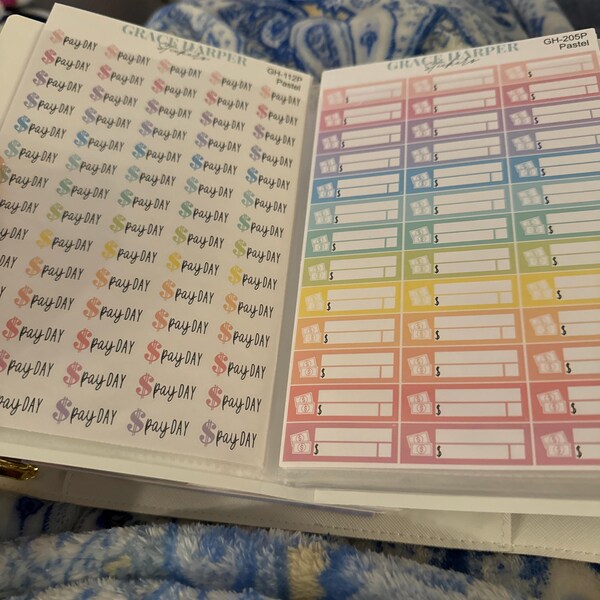 GRACE HARPER
Stickers
GH-112P
Pastel
$pay DAY $pay DAY $pay DAY $pay DAY $pay DAY
$pay DAY $pay DAY $pay DAY $pay DAY $pay DAY
$pay DAY $pay DAY $pay DAY $pay DAY $pay DAY
$pay DAY $pay DAY $pay DAY $pay DAY $pay DAY
$pay DAY $pay DAY $pay DAY $pay DAY $pay DAY
$pay DAY $pay DAY $pay DAY $pay DAY $pay DAY
$pay DAY $pay DAY $pay DAY $pay DAY $pay DAY
pay DAY $pay DAY $pay DAY $pay DAY $pay DAY
pay DAY $pay DAY $pay DAY $pay DAY $pay DAY
DAY $pay DAY $pay DAY $pay DAY $pay DAY
$pay DAY $pay DAY $pay DAY $pay DAY
$pay DAY $pay DAY $pay DAY $pay DAY
pay DAY $pay DAY $pay DAY $pay DAY
pay DAY $pay DAY $pay DAY $pay DAY
GRACE HARPER
Stickers
GH-205P
Pastel
$ $ $
$ $ $
$ $ $
$ $ $
$ $ $
$ $ $
$ $ $
$ $ $
$ $ $
$ $ $
$ $ $
$ $ $
$ $ $